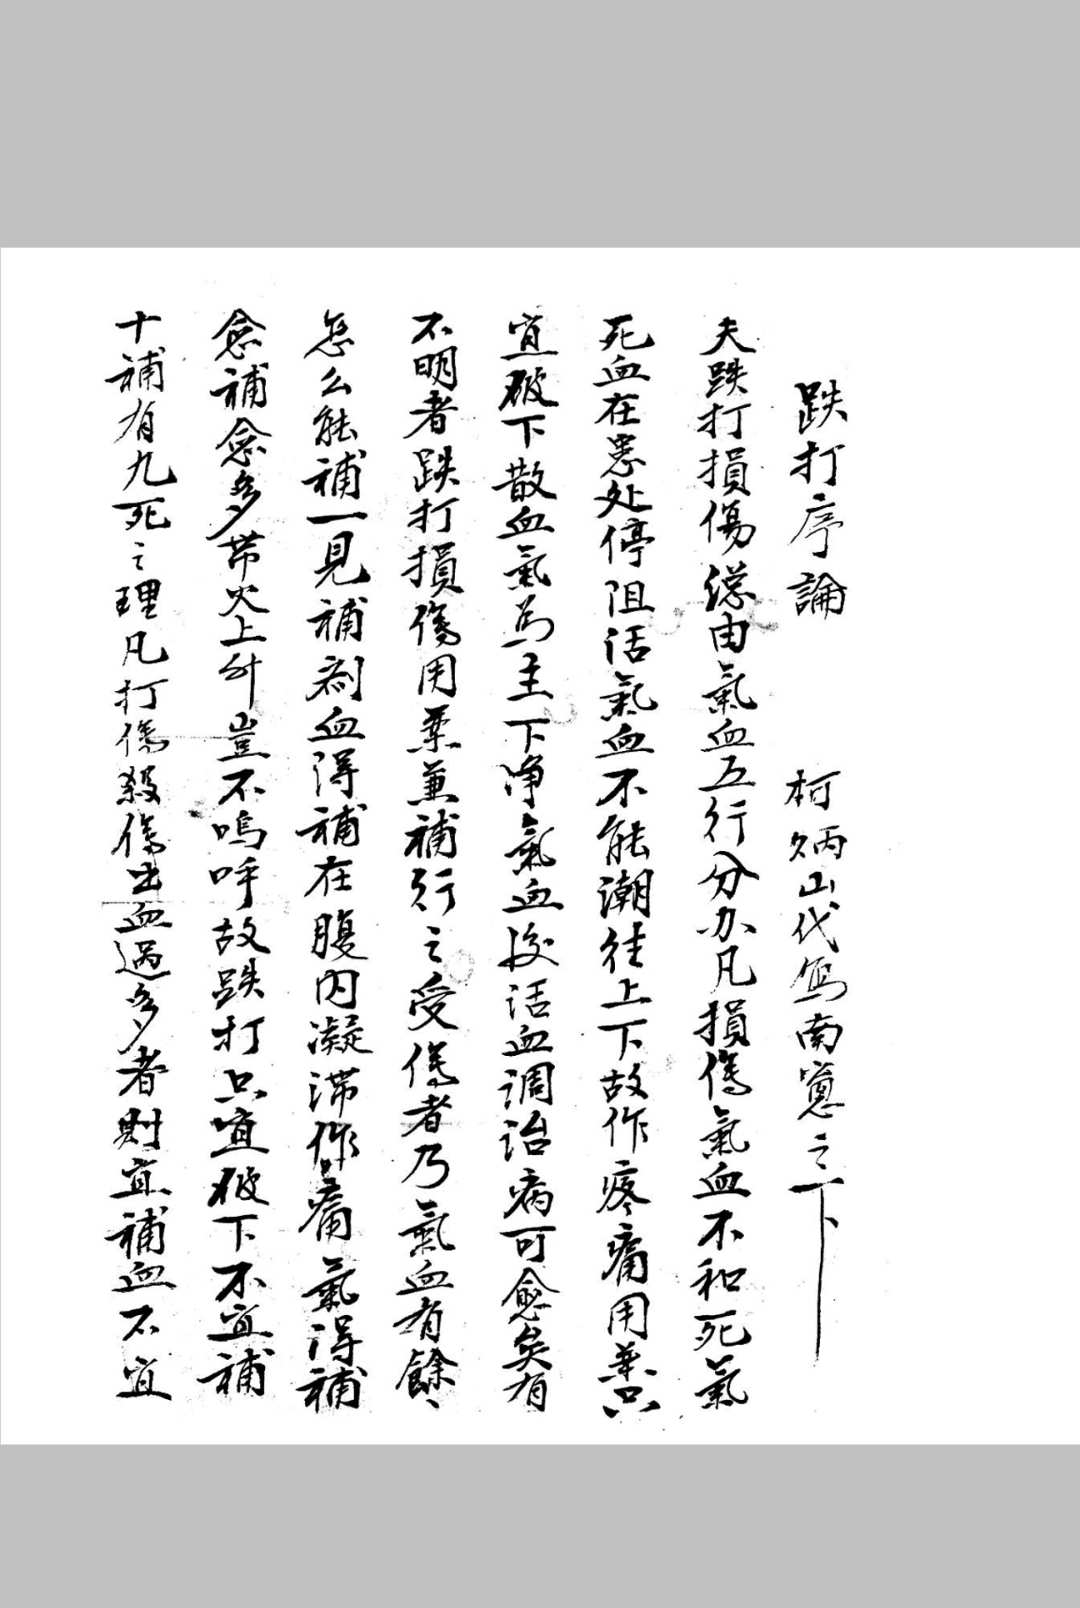 跌打序論 柯炳山代寫南窻之下
夫跌打損傷總由氣血五行分办凡損傷氣血不和死氣
死血在患处停阻活氣血不能潮往上下故作疼痛用藥只
宜破下散血氣為主下净氣血後活血調治病可愈矣有
不明者跌打損傷用藥兼補行之受傷者乃氣血有餘〻
怎么能補一見補剤血得補在腹内凝滞作痛氣得補
愈補愈多帶火上升豈不嗚呼故跌打只宜破下不宜補
十補有九死之理凡打傷殺傷出血過多者則宜補血不宜